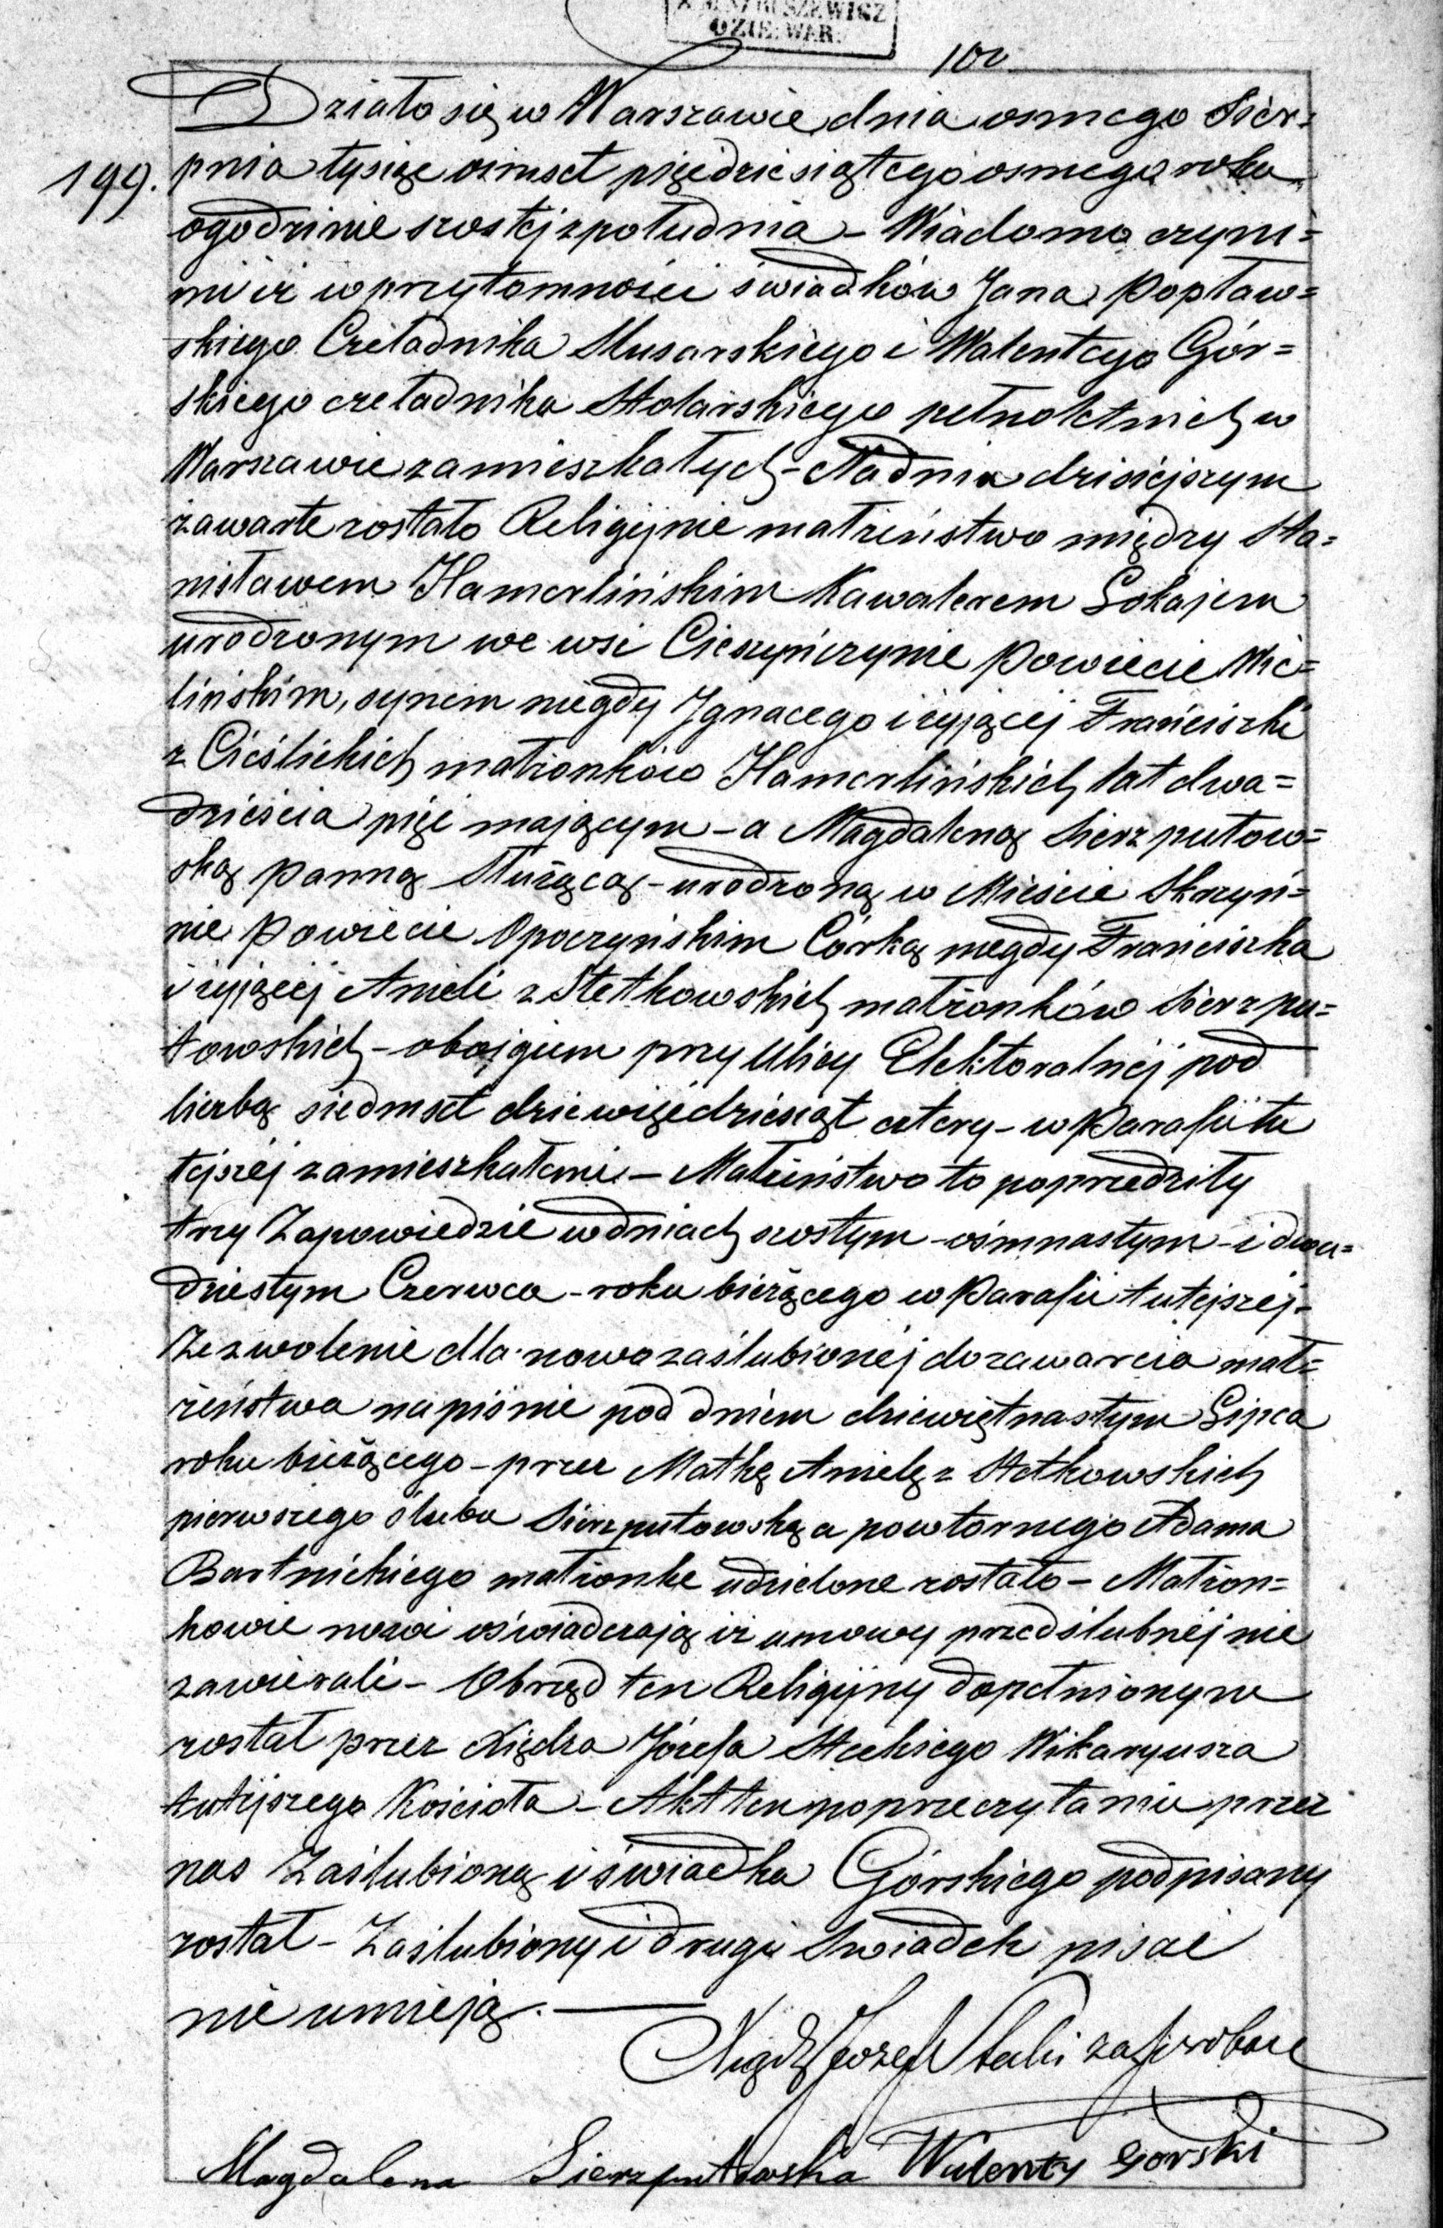 OZIE. WAR.
100
Działo się w Warszawie dnia osmego Sier=
199.
pnia tysiąc osmset pięćdziesiątego osmego roku
o godzinie szostej z południa – Wiadomo czyni=
mi iż w przytomności świadków Jana Popław=
skiego Czeladnika Slusarskiego i Walentego Gór=
skiego czeladnika Stolarskiego pełnoletnich w
Warszawie zamieszkałych – Na dniu dzisiejszym
zawarte zostało Religijnie małżeństwo między Sta=
nisławem Hamerlińskim Kawalerem Lokajem
urodzonym we wsi Cieszyńczynie Powiecie Wie=
lińskim, synem niegdy Ignacego i żyjącej Franciszki
z Cieślickich małżonków Hamerlińskich, lat dwa=
dzieścia pięć mającym – a Magdaleną Sierzputow=
ską Panną Służącą – urodzoną w Mieście Skrzyń=
nie Powiecie Opoczyńskim Córką niegdy Franciszka
i żyjącej Anieli z Stetkowskich małżonków Sierzpu=
towskich – obojgiem przy Ulicy Elektoralnéj pod
liczbą siedmset dziewięćdziesiąt cztery – w Parafii tu
tejszéj zamieszkałemi – Małżeństwo to poprzedziły
trzy Zapowiedzie w dniach szostym – ośmnastym – i dwu=
dziestym Czerwca – roku bieżącego w Parafii tutejszej –
Zezwolenie dla nowozaślubionéj do zawarcia mał=
żeństwa na piśmie pod dniem dziewiętnastym Lipca
roku bieżącego – przez Matkę Anielę z Stetkowskich
pierwszego ślubu Sierzputowską a powtornego Adama
Bartnickiego małżonkę udzielone zostało – Małżon=
kowie nowi oświadczają iż umowy przedślubnéj nie
zawierali – Obrząd ten Religijny dopełnionym
został przez Xiędza Józefa Steckiego Wikaryusza
tutejszego Kościoła – Akt ten po przeczytaniu przez
nas Zaślubioną i świadka Górskiego podpisany
został – Zaślubiony i drugi Swiadek pisać
nie umieją. —
Xiądz Jozef Stecki za Proboscz
Magdalena Sierzputowska Walenty Gorski